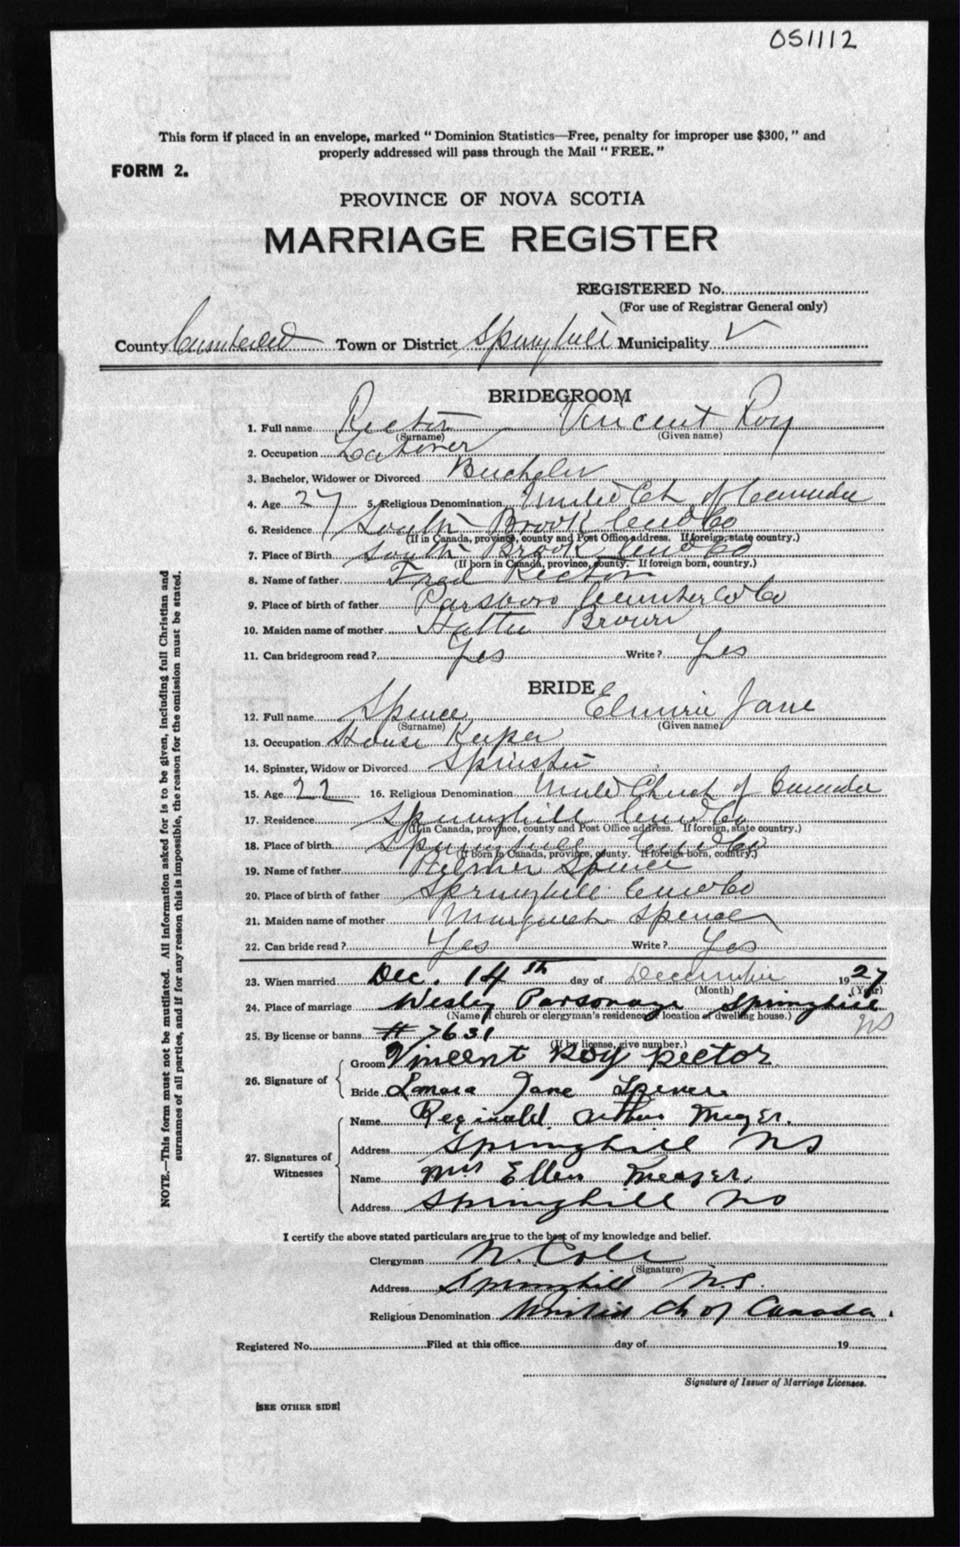 051112
This form if placed in an envelope, marked "Dominion Statistics—Free, penalty for improper use $300," and
properly addressed will pass through the Mail "FREE."
FORM 2.
PROVINCE OF NOVA SCOTIA
MARRIAGE REGISTER
REGISTERED No.
(For use of Registrar General only)
County Cumberland Town or District Springhill Municipality
BRIDEGROOM
1. Full name Rector Vincent Roy
(Surname) (Given name)
2. Occupation Laborer
3. Bachelor, Widower or Divorced Bachelor
4. Age 27 5. Religious Denomination United Ch of Canada
6. Residence South Brook Cumb Co
(If in Canada, province, county and Post Office address. If foreign, state country.)
7. Place of Birth South Brook Cumb Co
(If born in Canada, province, county. If foreign born, country.)
8. Name of father Fred Rector
9. Place of birth of father Parsboro Cumberland Co
10. Maiden name of mother Hattie Brown
11. Can bridegroom read? Yes Write? Yes
BRIDE
12. Full name Spence Jane
(Surname) (Given name)
13. Occupation House Keeper
14. Spinster, Widow or Divorced Spinster
15. Age 22 16. Religious Denomination United Church of Canada
17. Residence Springhill Cumb Co
(If in Canada, province, county and Post Office address. If foreign, state country.)
18. Place of birth Springhill Cumb Co
(If born in Canada, province, county. If foreign born, country.)
19. Name of father Spence
20. Place of birth of father Springhill Cumb Co
21. Maiden name of mother Margaret Spence
22. Can bride read? Yes Write? Yes
23. When married Dec. 14th day of December 1927
(Month) (Year)
24. Place of marriage Wesley Parsonage Springhill
(Name of church or clergyman's residence, location of dwelling house.) NS
25. By license or banns # 7631
(If by license, give number.)
26. Signature of
Groom Vincent Roy Rector
Bride Jane Spence
27. Signatures of Witnesses
Name Reginald Arthur
Address Springhill NS
Name Mrs Ellen
Address Springhill NS
I certify the above stated particulars are true to the best of my knowledge and belief.
Clergyman
(Signature)
Address Springhill N.S.
Religious Denomination United Ch of Canada.
Registered No. Filed at this office day of 19
Signature of Issuer of Marriage Licenses.
[SEE OTHER SIDE]
NOTE.—This form must not be mutilated. All information asked for is to be given, including full Christian and
surnames of all parties, and if for any reason this is impossible, the reason for the omission must be stated.